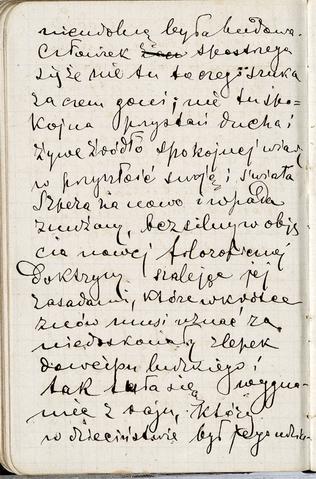 nieudolną była budowa.
Człowiek spostrzega
się że nie tu to czego szuka
za czem goni; nie tu spo-
kojna przystań ducha i
żywe źródło spokojnej wiary
w przyszłość swoją i świata
Szpera za nowo i wpada
znużony, bezsilny w obję-
cia nowej filozoficznej
Doktryny szaleje jej
zasadami, które wkrótce
znów musi uznać za
niedoskonały zlepek
dowcipu ludzkiego i
tak tuła się wygna-
niec z raju, którą
w dzieciństwie był